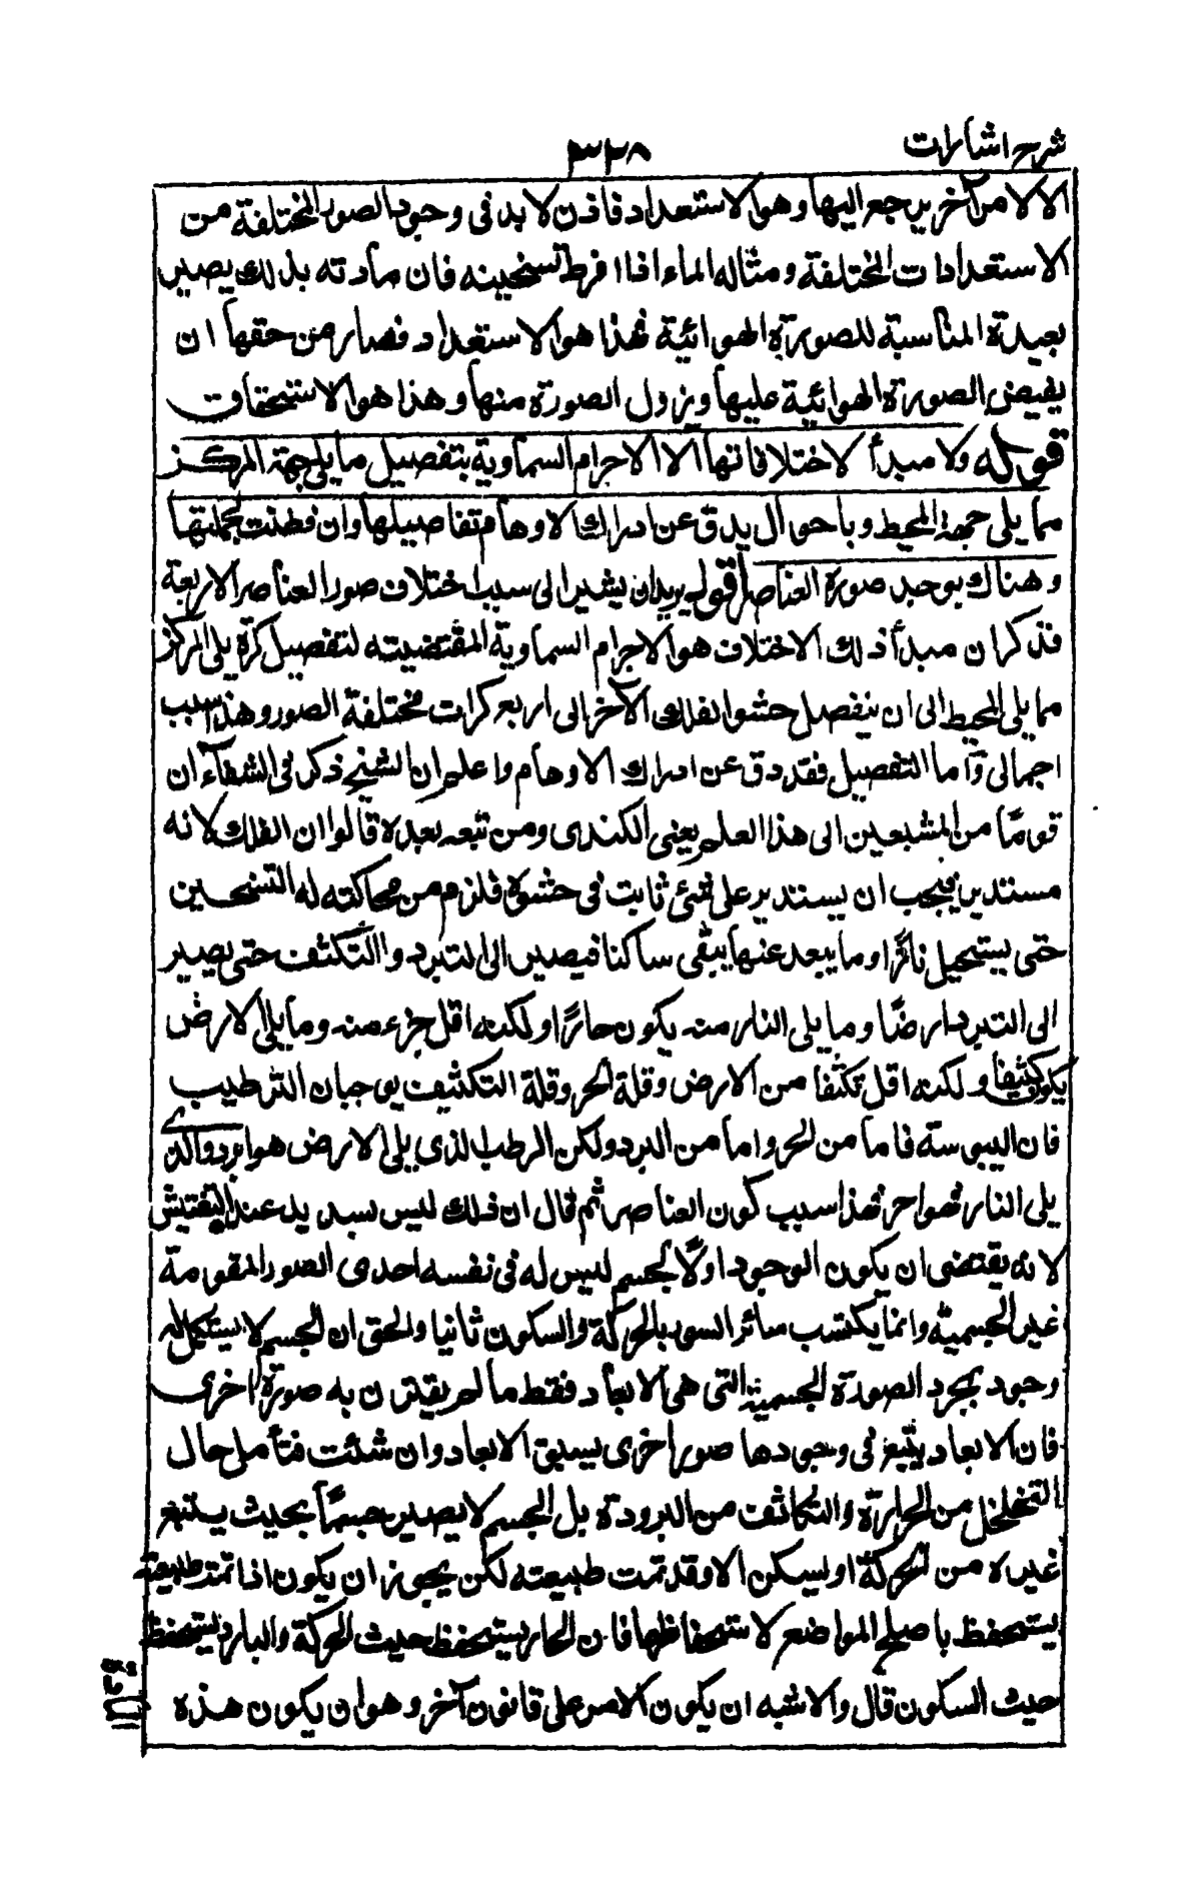 شرح اشارات
٣٣٨
الا لامر آخر يرجع اليها وهو الاستعداد فاذن لا بد فى وجود الصور المختلفة من
الاستعدادات المختلفة ومثاله الماء اذا افرط تسخينه فان مادته بذلك يصير
بعيدة المناسبة للصورة الهوائية فهذا هو الاستعداد فصار من حقها ان
يفيض الصورة الهوائية عليها ويزول الصورة منها وهذا هو الاستحقاق
قوله ولا مبدأ لاختلافاتها الا الاجرام السماوية بتفصيل ما يلى جهة المركز
مما يلى جهة المحيط وباحوال يدق عن ادراك الاوهام تفاصيلها وان فطنت لجملتها
وهناك يوجد صورة العناصر اقول يريد ان يشير الى سبب اختلاف صور العناصر الاربعة
فذكر ان مبدأ ذلك الاختلاف هو الاجرام السماوية المقتضيته لتفصيل كرة يلى المركز
مما يلى المحيط الى ان ينفصل حشو الفلك الآخر الى اربع كرات مختلفة الصور وهذا سبب
اجمالى وآما التفصيل فقد دق عن ادراك الاوهام واعلم ان الشيخ ذكر فى الشفآء ان
قومًا من المشبعين الى هذا العلم يعنى الكندى ومن تبعه بعده قالوا ان الفلك لانه
مستدير فيجب ان يستدير على شئ ثابت فى حشوه فلزم من محاكته له التسخين
حتى يستحيل نارًا وما يبعد عنها يبقى ساكنا فيصير الى التبرد والتكثف حتى يصير
الى التبرد ارضًا وما يلى النار منه يكون حارًا ولكنه اقل جزء منه وما يلى الارض
يكون كثيفا ولكنه اقل تكثفا من الارض وقلة الحر وقلة التكثيف يوجبان الترطيب
فان اليبوسة فاما من الحر واما من البرد ولكن الرطب الذى يلى الارض هو ابرد والذى
يلى النار فهو احر فهذا سبب كون العناصر ثم قال ان ذلك ليس بسديد عند التفتيش
لانه يقتضى ان يكون الوجود اولًا لجسم ليس له فى نفسه احدى الصور المقومة
غير الجسمية وانما يكتسب سائر السور بالحركة والسكون ثانيا والحق ان الجسم لا يستكمل له
وجود بمجرد الصورة الجسمية التى هى الابعاد فقط ما لم يقترن به صورة اخرى
فان الابعاد يتبع فى وجودها صور اخرى يسبق الابعاد وان شئت فتأمل حال
التخلخل من الحرارة والتكاثف من البرودة بل الجسم لا يصير جسمًا بحيث يستتبع
غيره من الحركة او يسكن الا وقد تمت طبيعته لكن يجوز ان يكون اذا تمت طبيعته
يستحفظ باصلح المواضع لاستحفاظها فان الحار يستحفظ حيث الحركة والبارد يستحفظ
حيث السكون قال والاشبه ان يكون الامر على قانون آخر وهو ان يكون هذه